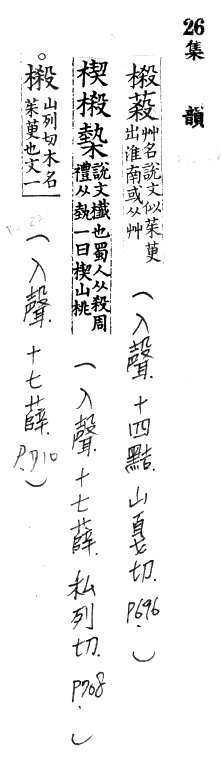 26 集韻
榝藙 艸名說文似茱萸
出淮南或从艸
(入聲. 十四黠. 山戛切. P.696.)
楔榝槷 說文櫼也蜀人从殺周
禮从埶一曰楔山桃
(入聲. 十七薛. 私列切. P.708.)
。榝 山列切木名
茱萸也文一
(入聲. 十七薛. P.710)